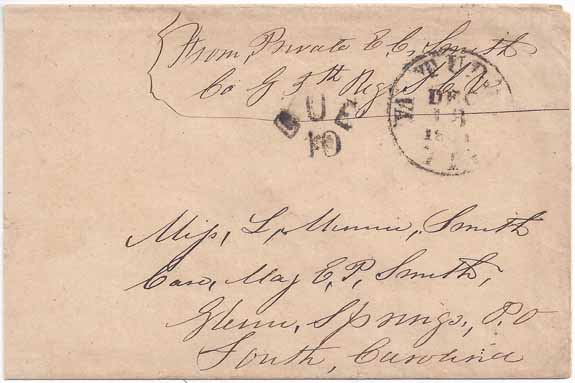 From, Private E, C, Smith
Co G 5th Reg S, C, V,
DUE
10
TUDOR
VA
DEC
13
Miss, L, Minnie, Smith
Care, Maj E, P, Smith,
Glenn, Springs, P.O
South, Carolina